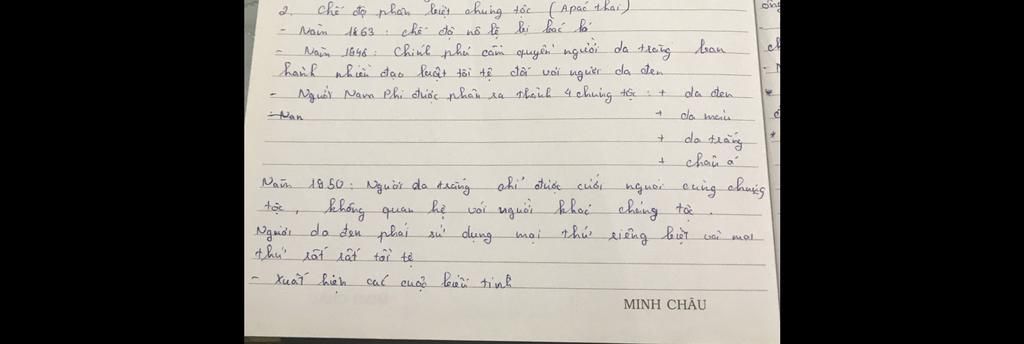 2. Chế độ phân biệt chủng tộc ( Apác thai )
- Năm 1863 : chế độ nô lệ bị bác bỏ
- Năm 1948 : Chính phủ cầm quyền người da trắng ban
hành nhiều đạo luật tồi tệ đối với người da đen
- Người Nam Phi được phân ra thành 4 chủng tộc : + da đen
+ da màu
+ da trắng
+ châu á
Năm 1950 : Người da trắng chỉ được cưới người cùng chủng
tộc , không quan hệ với người khác chủng tộc .
Người da đen phải sử dụng mọi thứ riêng biệt và mọi
thứ rất rất tồi tệ
- Xuất hiện các cuộc biểu tình
MINH CHÂU